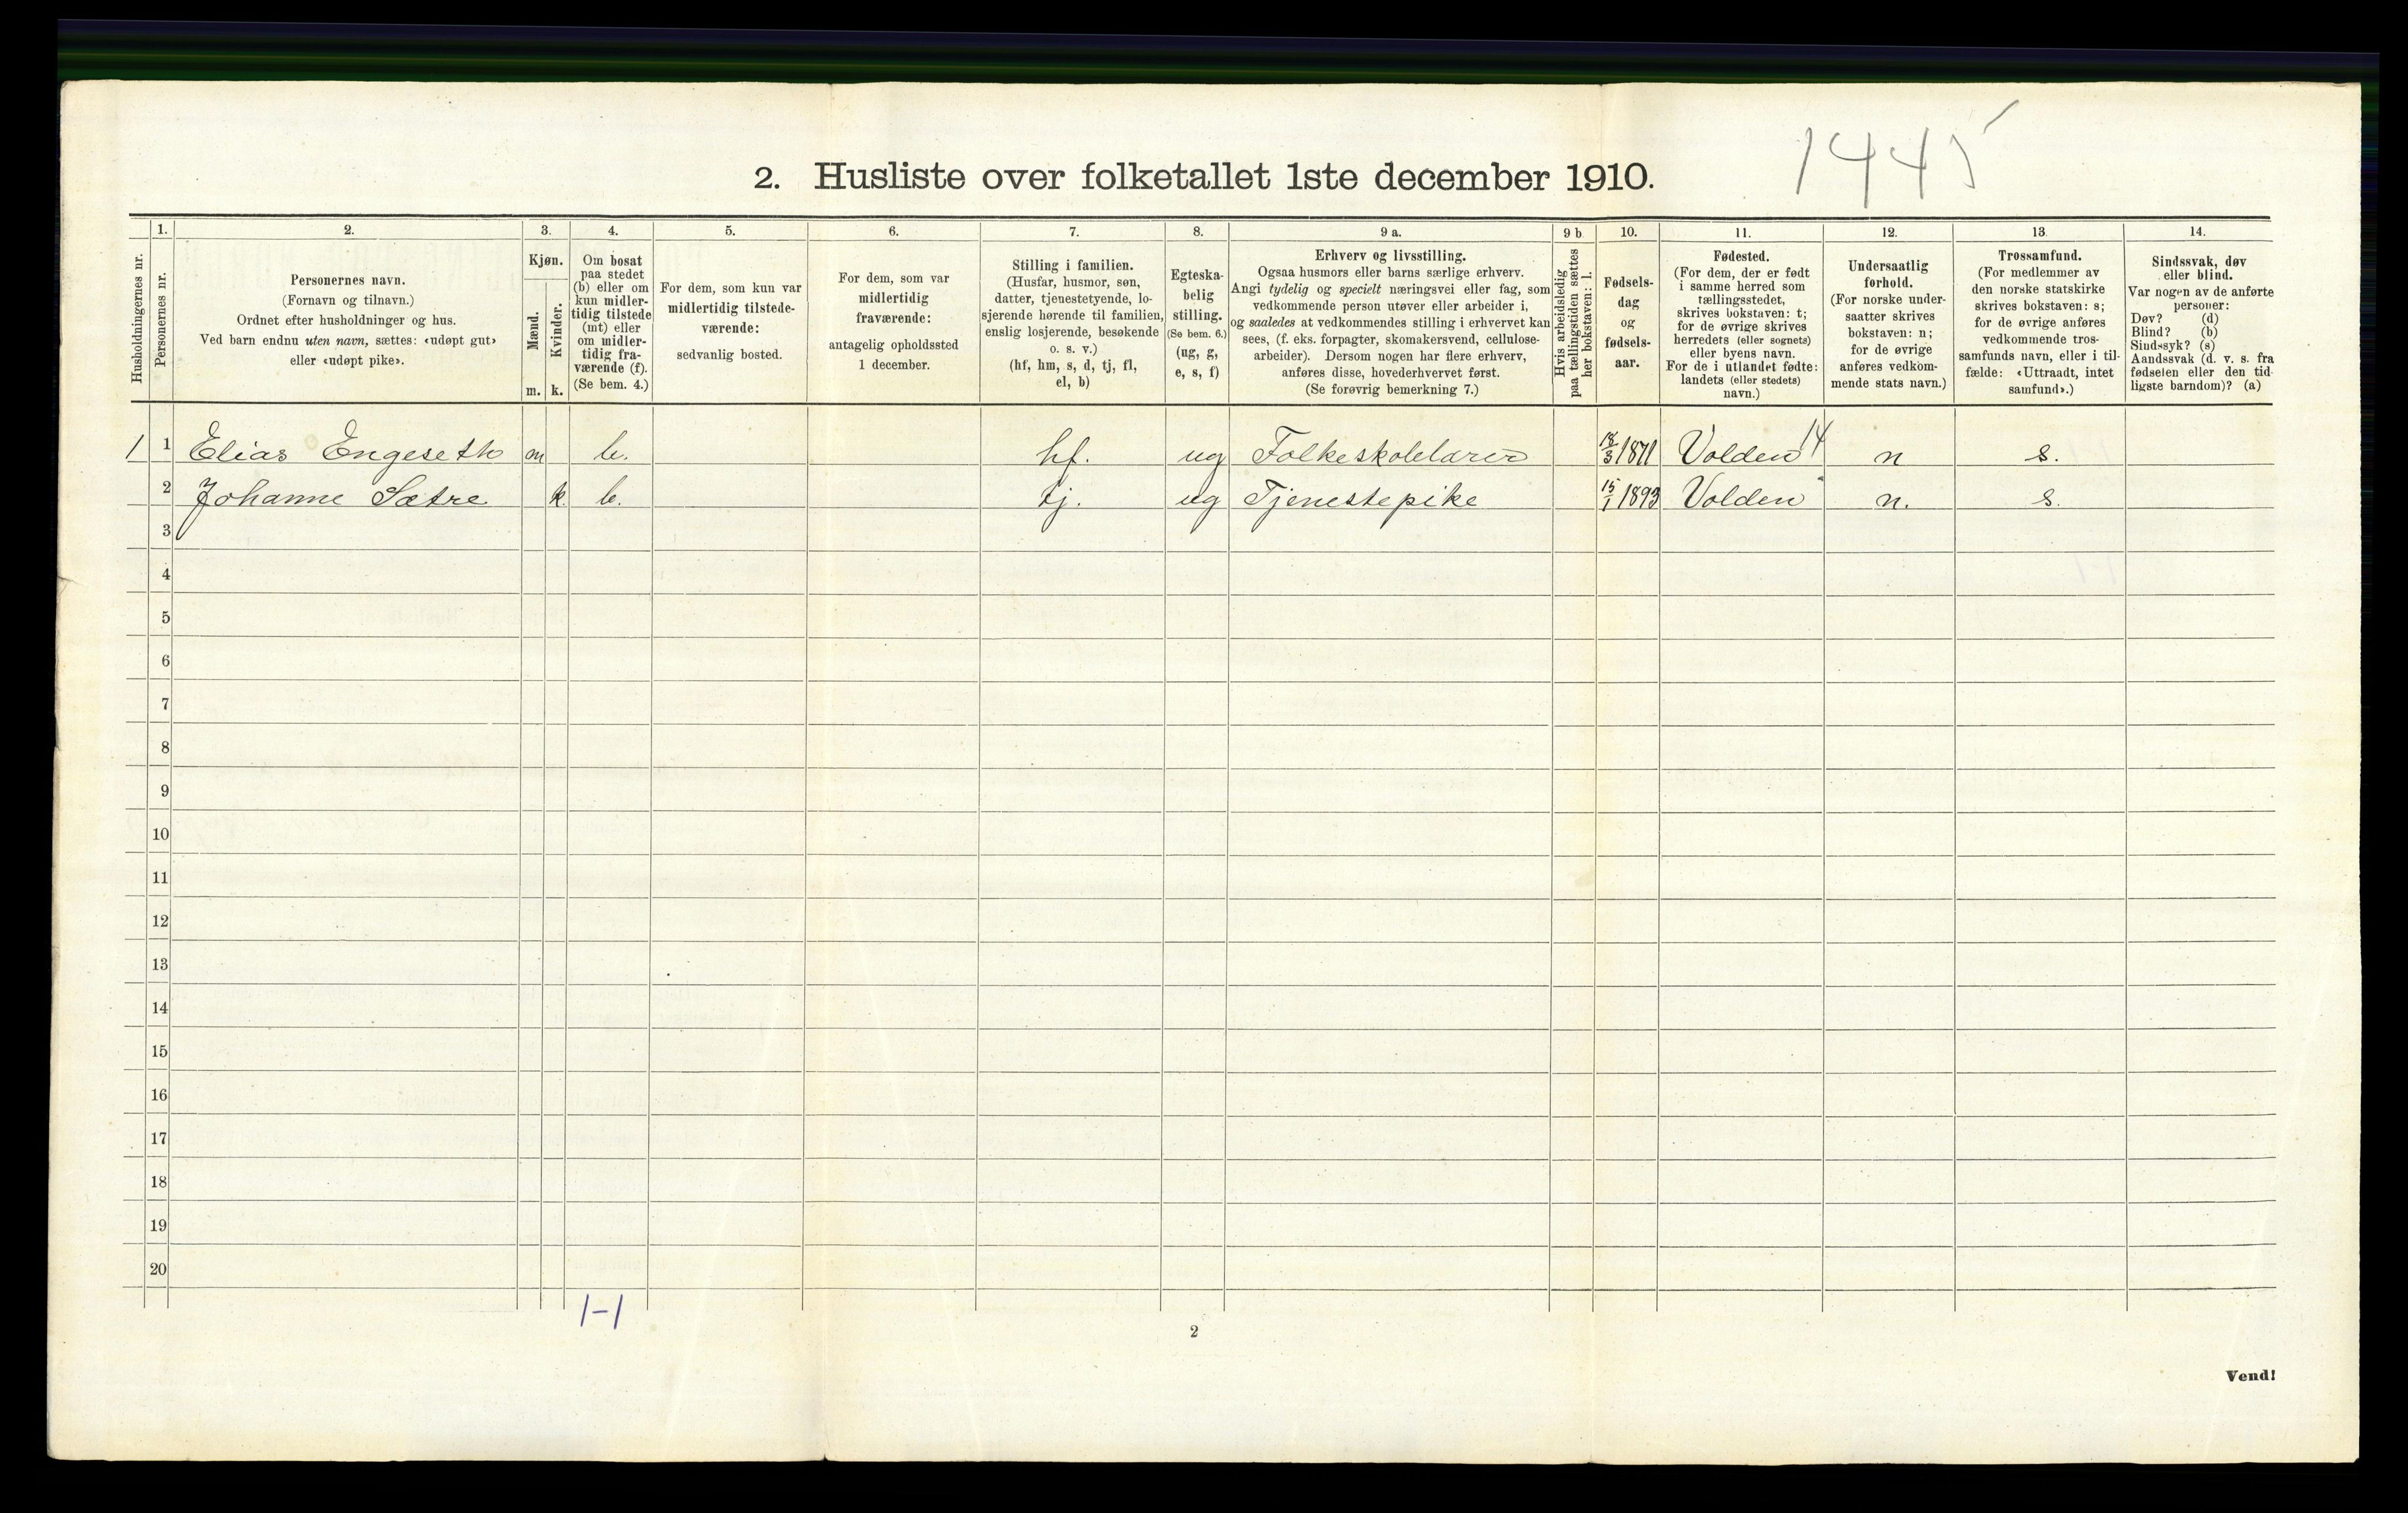 1445
2. Husliste over folketallet 1ste december 1910.
Husholdningernes nr.
1.
Personernes nr.
2.
Personernes navn.
(Fornavn og tilnavn.)
Ordnet efter husholdninger og hus.
Ved barn endnu uten navn, sættes: «udøpt gut»
eller «udøpt pike».
3.
Kjøn.
Mænd.
Kvinder.
m. k.
4.
Om bosat
paa stedet
(b) eller om
kun midler-
tidig tilstede
(mt) eller
om midler-
tidig fra-
værende (f).
(Se bem. 4.)
5.
For dem, som kun var
midlertidig tilstede-
værende:
sedvanlig bosted.
6.
For dem, som var
midlertidig
fraværende:
antagelig opholdssted
1 december.
7.
Stilling i familien.
(Husfar, husmor, søn,
datter, tjenestetyende, lo-
sjerende hørende til familien,
enslig losjerende, besøkende
o. s. v.)
(hf, hm, s, d, tj, fl,
el, b)
8.
Egteska-
belig
stilling.
(Se bem. 6.)
(ug, g,
e, s, f)
9 a.
Erhverv og livsstilling.
Ogsaa husmors eller barns særlige erhverv.
Angi tydelig og specielt næringsvei eller fag, som
vedkommende person utøver eller arbeider i,
og saaledes at vedkommendes stilling i erhvervet kan
sees, (f. eks. forpagter, skomakersvend, cellulose-
arbeider). Dersom nogen har flere erhverv,
anføres disse, hovederhvervet først.
(Se forøvrig bemerkning 7.)
9 b
Hvis arbeidsledig
paa tællingstiden sættes
her bokstaven: l.
10.
Fødsels-
dag
og
fødsels-
aar.
11.
Fødested.
(For dem, der er født
i samme herred som
tællingsstedet,
skrives bokstaven: t;
for de øvrige skrives
herredets (eller sognets)
eller byens navn.
For de i utlandet fødte:
landets (eller stedets)
navn.)
12.
Undersaatlig
forhold.
(For norske under-
saatter skrives
bokstaven: n;
for de øvrige
anføres vedkom-
mende stats navn.)
13.
Trossamfund.
(For medlemmer av
den norske statskirke
skrives bokstaven: s;
for de øvrige anføres
vedkommende tros-
samfunds navn, eller i til-
fælde: «Uttraadt, intet
samfund».)
14.
Sindssvak, døv
eller blind.
Var nogen av de anførte
personer:
Døv? (d)
Blind? (b)
Sindssyk? (s)
Aandssvak (d. v. s. fra
fødselen eller den tid-
ligste barndom)? (a)
1 1 Elias Engeseth m b. hf. ug Folkeskolelærer 18/3 1871 Volden 14 n s.
2 Johanne Sætre k. b. tj. ug Tjenestepike 15/1 1893 Volden n. s.
3
4
5
6
7
8
9
10
11
12
13
14
15
16
17
18
19
20
1-1
2
Vend!